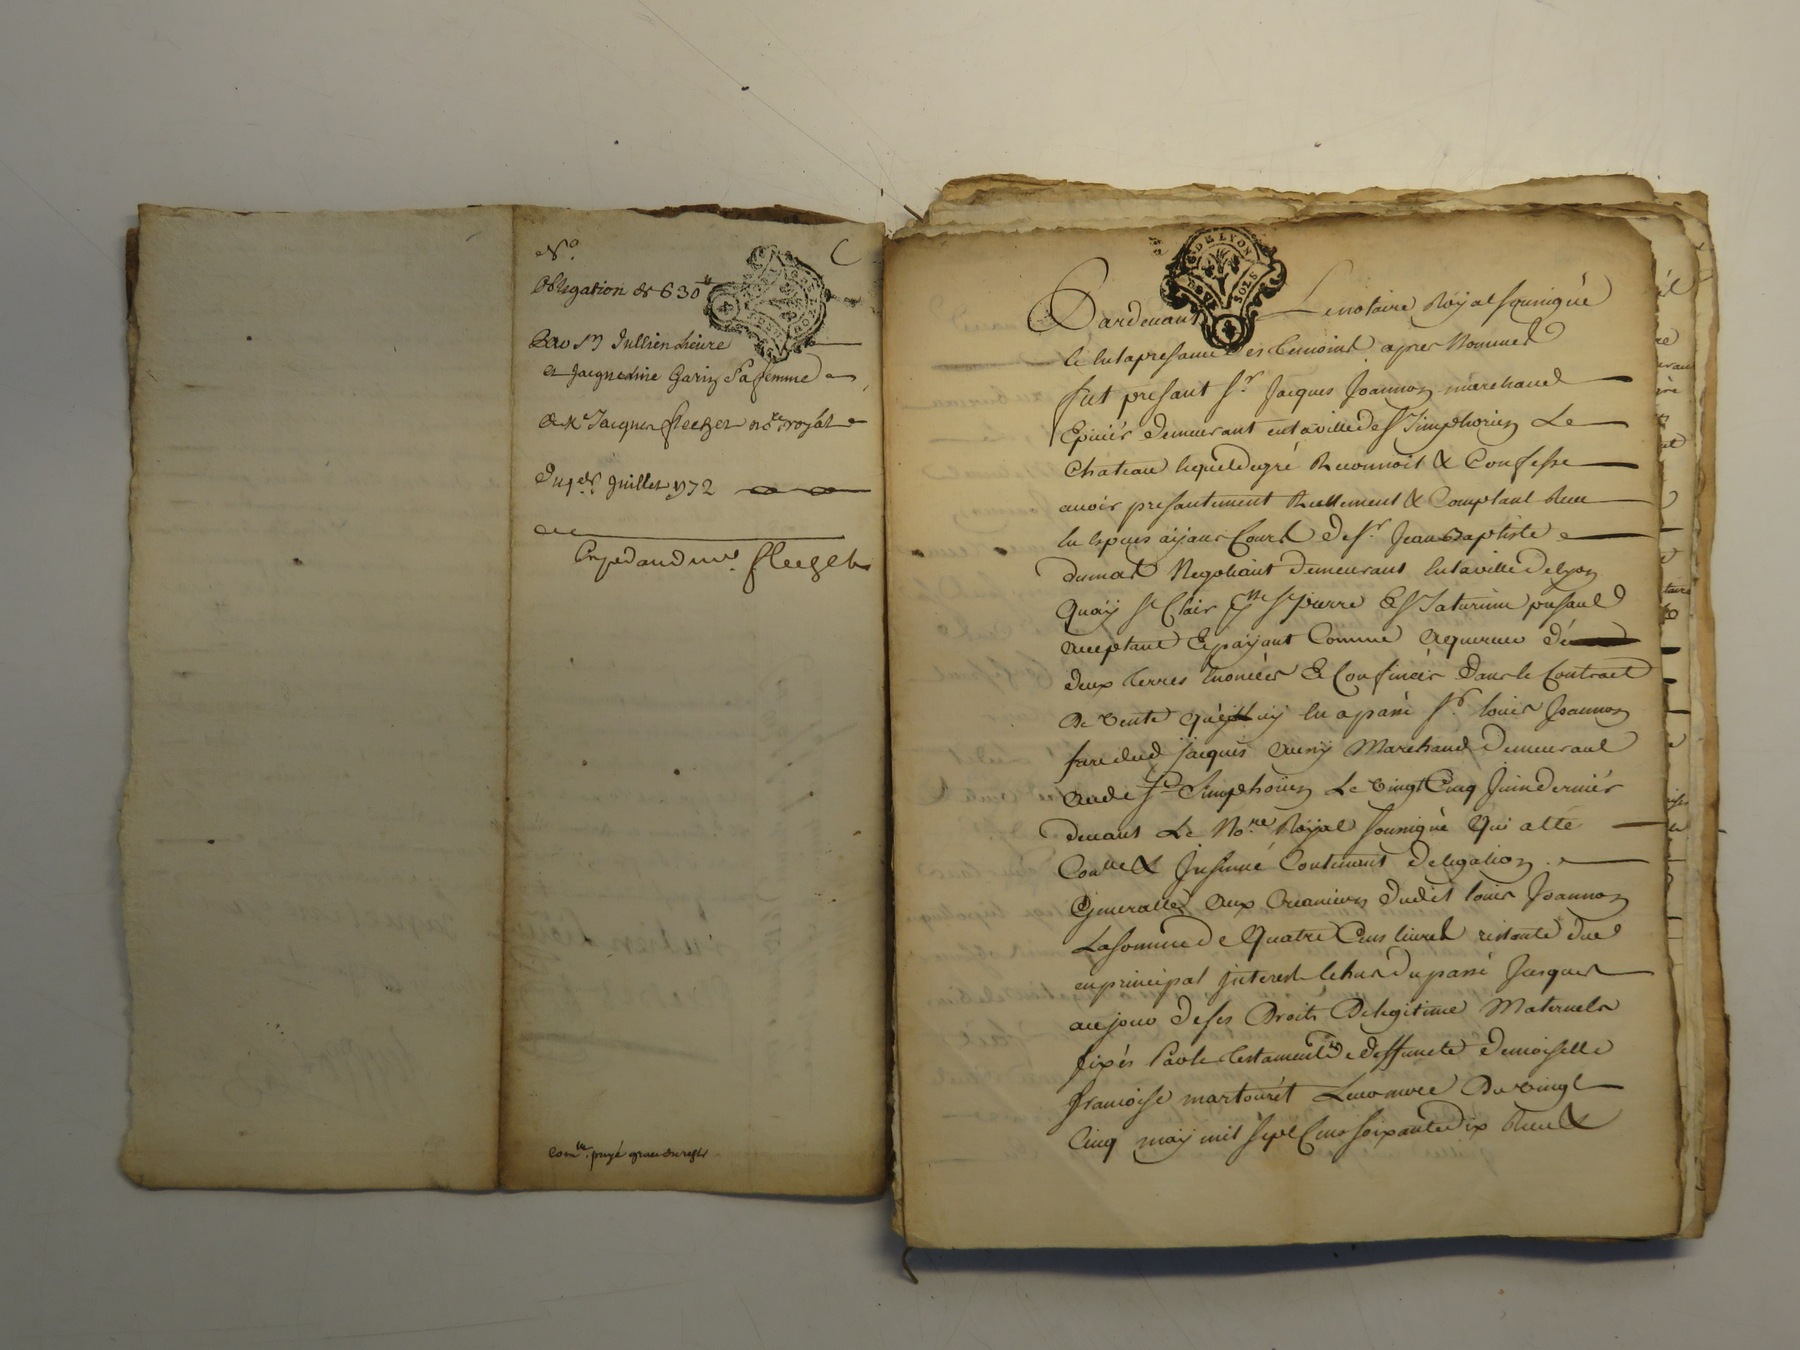 N°
C
Obligation de 630tt
Par Sr Jullien Lieure
et Jacquedine Garin Sa femme
A Me Jacques flechet nore royal
Du 4e Juillet 1772
Expedand mr. flechet
Comle. payé grau en regle
G. DE LYON
DEUX SOLS
Pardevant Le notaire Royal soussigné
et En la presance des temoins apres Nommés
fut present Sr. Jacques Joannon marchand
Epicier demeurant en la ville de St Simphorien Le
Chateau lequel de gré Reconnoit & Confesse
avoir presantement Reellement & Comptant Recu
En Especes aÿant Court de Sr. Jean Baptiste
dumas Negotiant demeurant En la ville de lyon
Quaÿ St Clair psse St pierre Et St Saturnin present
acceptant Et paÿant Comme acquereur de
deux terres Enoncées & Confinées dans le Contract
de Vente que luy En a passé Sr. louis Joannon
frere dud jacques aussy Marchand demeurant
aud St Simphorien Le Vingt Cinq Juin dernier
devant Le Nore Roÿal soussigné Qui a été
Conllé & Insinué Contenant delegation
Generalle aux Creanciers dudit louis Joannon
La somme de Quatre Cens livres restante due
en principal jnterest Echus du passé Jusques
au jour de ses Droits de legitime Maternels
fixés Par le testament de deffuncte demoiselle
françoise martouret Leur mere Du Vingt
Cinq maÿ mil sept Cens soixante dix Recu &